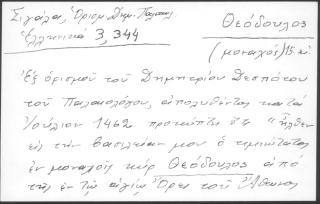 Σιγάλα, Ὁρισμ. Δημ. Παλαιολ.
Ἑλληνικά 3, 344
Θεόδουλος
(μοναχός) 15 αἰ
Ἐξ ὁρισμοῦ τοῦ Δημητρίου Δεσπότου
τοῦ Παλαιολόγου, ἀπολυθέντος κατά
Ἰούλιον 1462 προκύπτει ὅτι "ἦλθεν
εἰς τήν βασιλείαν μου ὁ τιμιώτατος
ἐν μοναχοῖς κύρ Θεόδουλος ἀπό
τῆς ἐν τῷ ἁγίῳ Ὄρει τοῦ Ἄθωνος